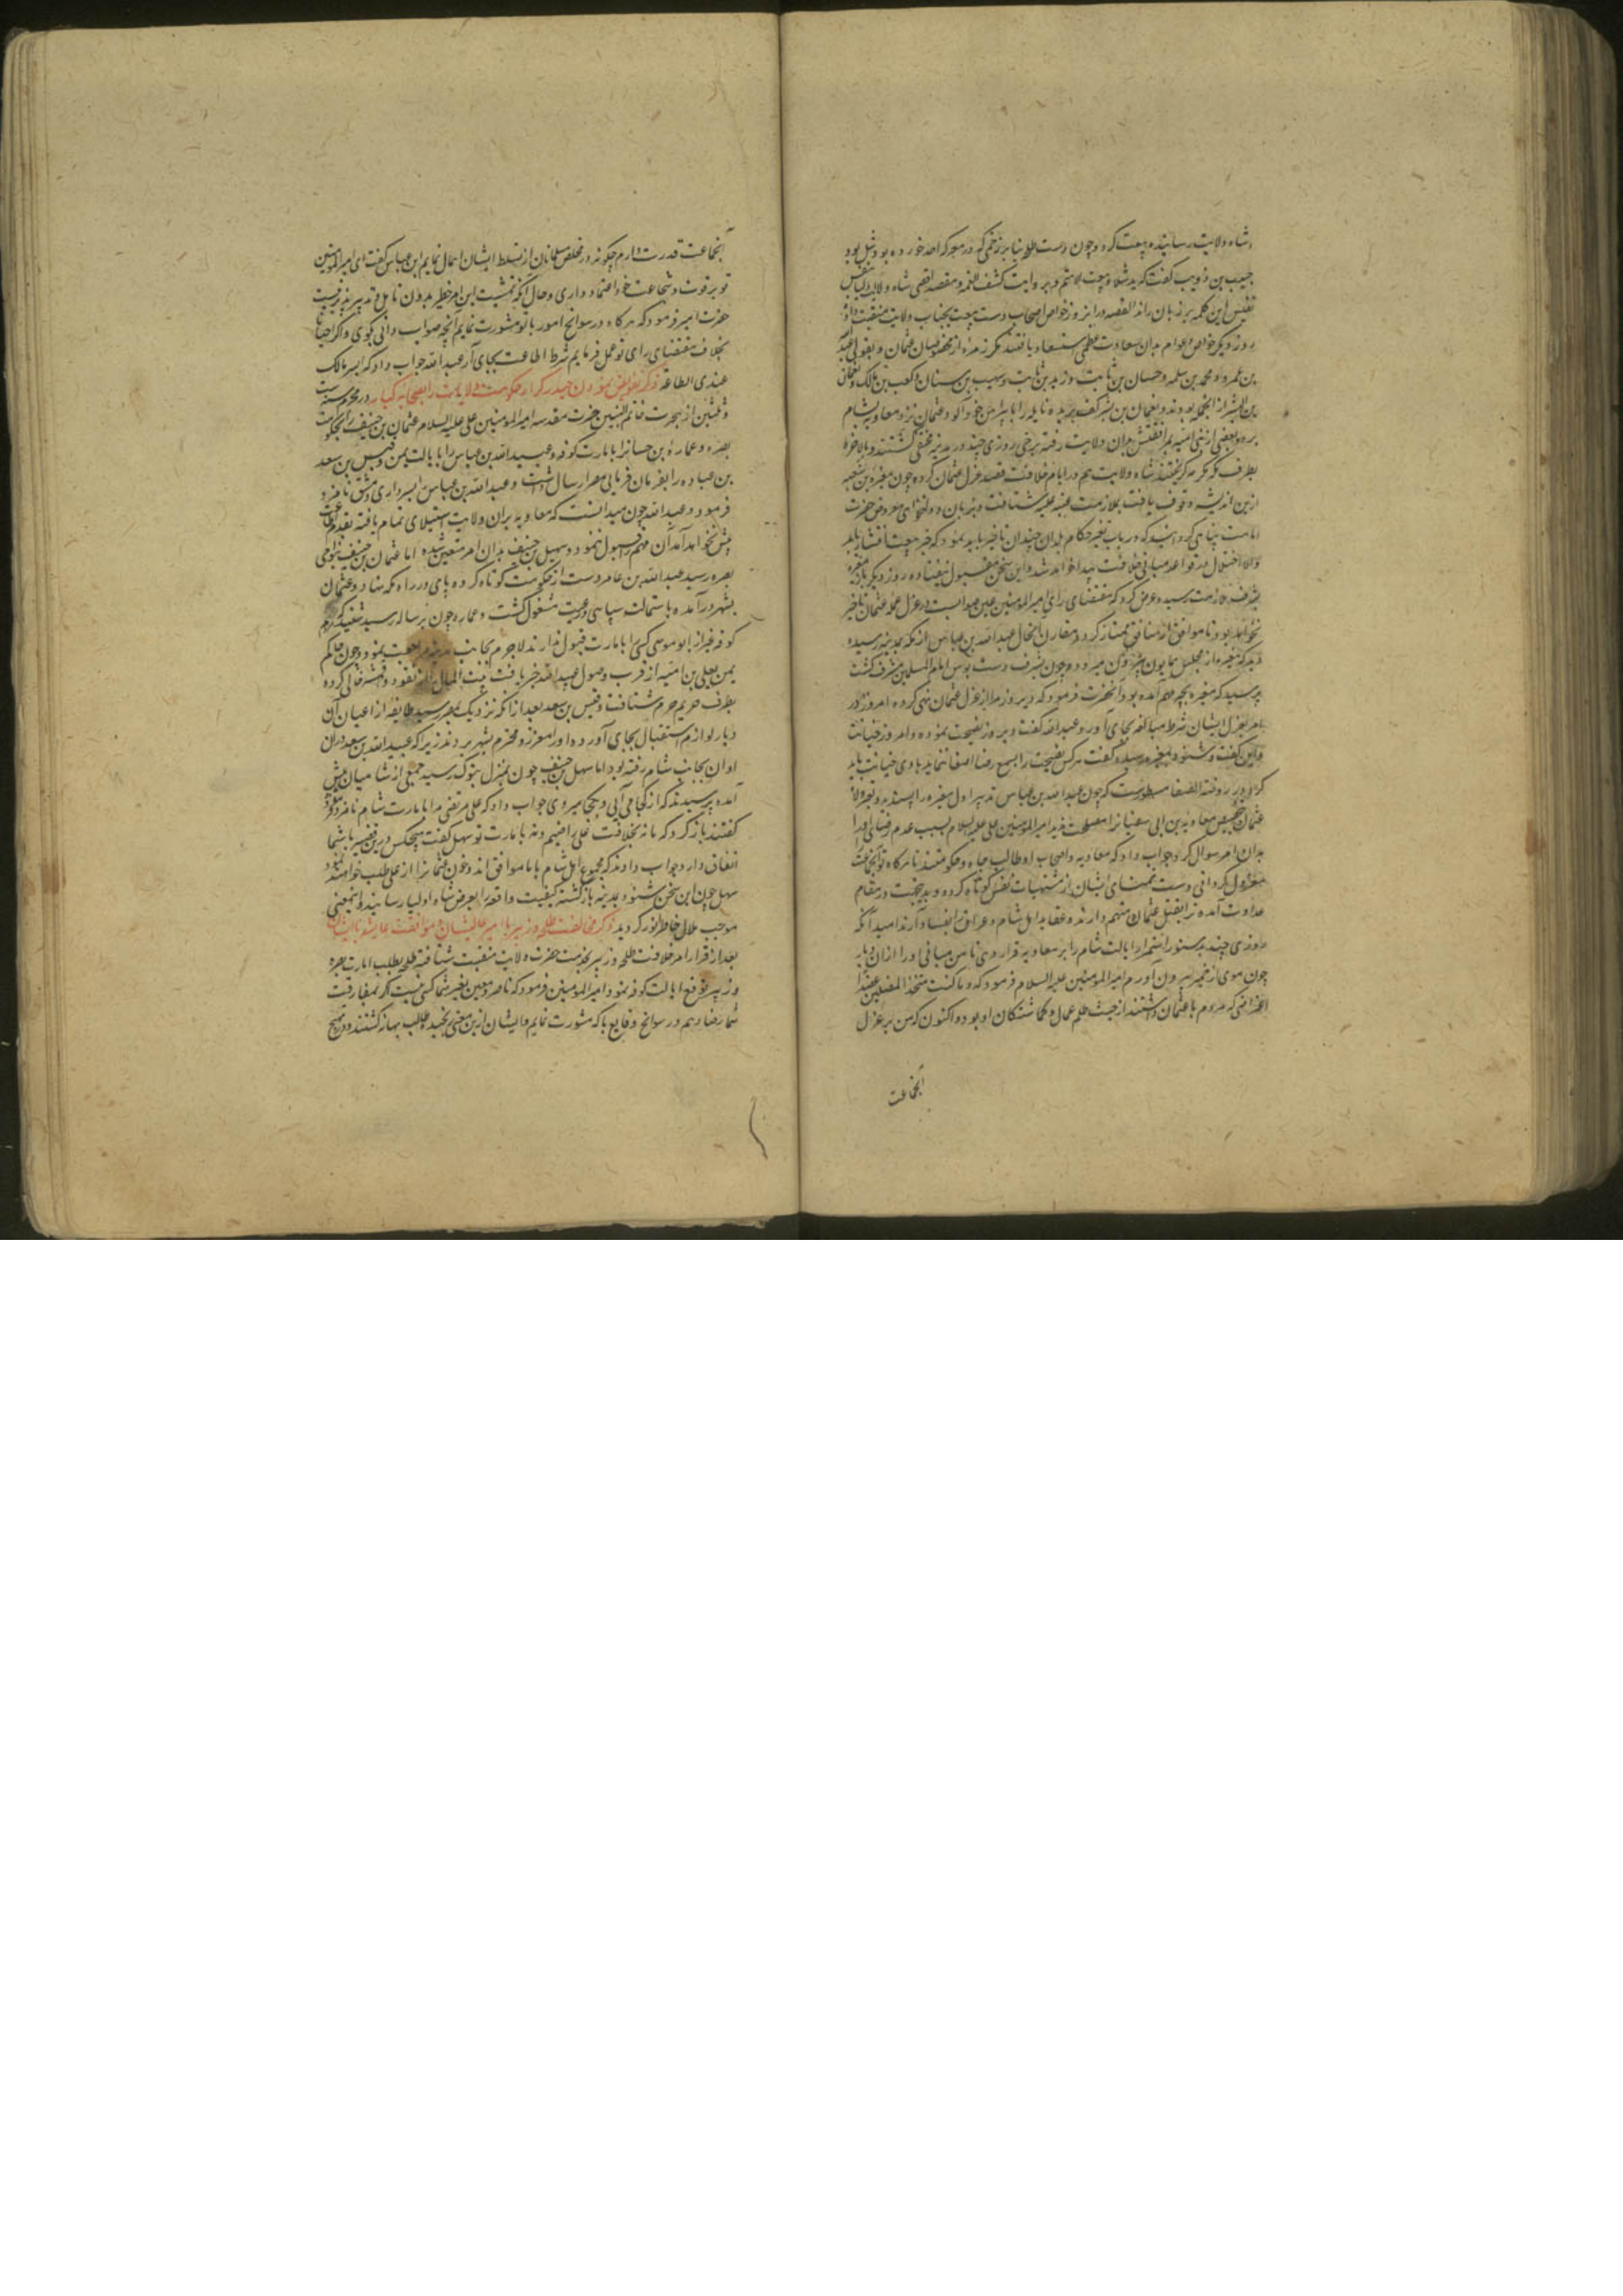 شاه ولایت رسانیده بیعت کرد و چون دست طلحه بنابر زخمی که در معرکه احد خورده بود شل بود
حبیب بن ذویب گفت که ید شلاء و بیعت لا یتم و بروایت کشف الغمه و مقصد اقصی شاه ولایت بنفس
نفیس این کلمه بر زبان راند القصه در این روز خواص اصحاب دست بیعت بجناب ولایت منقبت داد
روز دیگر خواص و عوام بدان سعادت عظمی استسعاد یافتند مگر زمره از مخصوصان عثمان و بقولی
بن عمر و محمد بن سلمه و حسان بن ثابت و زید بن ثابت و صهیب بن سنان و کعب بن مالک و نعمان
بن البشیر از آنجمله بودند و نعمان بن بشیر کف بریده نایله را با پیراهن خون آلود عثمان نزد معاویه بشام
برد و بعضی از بنی امیه بمرافقتش بدان ولایت رفته برخی روزی چند در مدینه مختفی گشتند و بالاخره
بطرف مکه مکرمه گریختند شاه ولایت هم در ایام خلافت قصد عزل عمال عثمان کرده چون مغیره بن شعبه
ازین اندیشه وقوف یافت بملازمت عتبه علیه شتافت و بزبان دولتخواهی معروض حضرت
امامت پناهی گردانید که در باب تغیر حکام بلدان چندان تاخیر باید نمود که خبر بیعت افشا یابد
والا اختلال در قواعد مبانی خلافت پیدا خواهد شد و این سخن مقبول نیفتاده روز دیگر باز مغیره
بشرف ملازمت رسید و عرض کرد که مقتضای رای امیرالمومنین عین صوابست در عزل عمله عثمان تاخیر
نخواهد بود تا موافق از منافق ممتاز گردد و مقارن اینحال عبدالله بن عباس از مکه بمدینه رسیده
دید که مغیره از مجلس همایون بیرون میرود و چون بشرف دست بوس امام المسلمین مشرف گشت
پرسید که مغیره بچه مهم آمده بود آنحضرت فرمود که دیروز مرا از عزل عمال عثمان نهی کرده امروز در
امر بعزل ایشان شرط مبالغه بجای آورد عبدالله گفت دیروز نصیحت نموده و امروز خیانت
و این گفت و شنود بمغیره رسیده گفت هر کس نصیحت را بسمع رضا اصغا ننماید با وی خیانت باید
کرد و در روضة الصفا مسطورست که چون عبدالله بن عباس تدبیر اول مغیره را پسندیده و بعزل
عثمان بتخصیص معاویه بن ابی سفیان مصلحت ندید امیرالمومنین علی علیه السلام بسبب عدم رضای او را
بدان امر سوال کرد جواب داد که معاویه و اصحاب او طالب جاه و حکومتند تا هرگاه تو آنجماعت
معزول گردانی دست تمنای ایشان از مشتهیات نفس کوتاه کرده و بدینجهت در مقام
عداوت آمده ترا بقتل عثمان متهم دارند و عقاید اهل شام و عراق را بفساد آرند امید آنکه
روزی چند بدستور استمرار ایالت شام را بر معاویه قرار دهی تا من مبانی او را از آن دیار
چون موی از خمیر بیرون آورم امیرالمومنین علیه السلام فرمود که و ما کنت متخذ المضلین عضدا
اعتراضی که مردم با عثمان داشتند از جهت ظلم عمال و گماشتگان او بود و اکنون که من بر عزل
آنجماعت
آنجماعت قدرت دارم چگونه در مخلص مسلمانان از تسلط ایشان اهمال نمایم ابن عباس گفت ای امیرالمومنین
تو بر قوت و شجاعت خود اعتماد داری و حال آنکه تمشیت این امر خطیر بدون تامل و تدبیر پذیر نیست
حضرت امیر فرمود که هرگاه در سوانح امور با تو مشورت نمایم آنچه صواب دانی بگوی و اگر احیانا
بخلاف مقتضای رای تو عمل فرمایم شرط اطاعت بجای آر عبدالله جواب داد که ایسر مالک
عندی الطاعة ذکر تفویض نمودن حیدر کرار حکومت ولایت را باصحابه کبار در محرم سنه ست
و ثلثین از هجرت خاتم النبیین حضرت مقدسه امیرالمومنین علی علیه السلام عثمان بن حنیف را بحکومت
بصره و عماره بن حسان را بامارت کوفه و عبیدالله بن عباس را بایالت یمن و قیس بن سعد
بن عباده را بفرمان فرمایی مصر ارسال داشت و عبدالله بن عباس را بسرداری دمشق نامزد
فرمود و عبدالله چون میدانست که معاویه بر آن ولایت استیلای تمام یافته بقدم اطاعت
پیش نخواهد آمد آن مهم را قبول ننمود و سهیل بن حنیف بدان امر متعین شده اما عثمان بن حنیف بنواحی
بصره رسید عبدالله بن عامر دست از حکومت کوتاه کرده پای در راه مکه نهاد و عثمان
بشهر درآمده باستمالت سپاهی و رعیت مشغول گشت و عماره چون بزباله رسید شنید که مردم
کوفه غیر از ابو موسی کسی را بامارت قبول ندارند لاجرم بجانب مدینه مراجعت نمود و چون حاکم
یمن یعلی بن امیه از قرب وصول عبیدالله خبر یافت بیت المال را از نقود و اقمشه خالی کرده
بطرف حریم حرم شتافت و قیس بن سعد بعد از آنکه نزدیک بمصر رسید طایفه از اعیان آن
دیار لوازم استقبال بجای آورده او را معزز و محترم بشهر بردند زیرا که عبدالله بن سعد در آن
اوان بجانب شام رفته بود اما سهل بن حنیف چون بمنزل تبوک رسید جمعی از شامیان پیش
آمده پرسیدند که از کجا می آیی و بکجا میروی جواب داد که علی مرتضی مرا بامارت شام نامزد فرمود
گفتند باز گرد که ما نه بخلافت علی راضییم و نه بامارت تو سهل گفت هیچکس درین قضیه با شما
اتفاق دارد جواب دادند که مجموع اهل شام با ما موافق اند و خون عثمان را از علی طلب خواهند نمود
سهل چون این سخن شنود بمدینه بازگشته کیفیت واقعه را بعرض شاه اولیا رسانید و اینمعنی
موجب ملال خاطر انور گردید ذکر مخالفت طلحه و زبیر با امیر عالیشان و موافقت عایشه با ایشان
بعد از قرار امر خلافت طلحه و زبیر بخدمت حضرت ولایت منقبت شتافته طلحه طلب امارت بصره
و زبیر توقع ایالت کوفه نمود امیرالمومنین فرمود که ناصر و معین بغیر شما کسی نیست اگر بمفارقت
شما رضا دهم در سوانح وقایع با که مشورت نمایم و ایشان ازین معنی رنجیده طالب بهانه گشتند و در هیچ